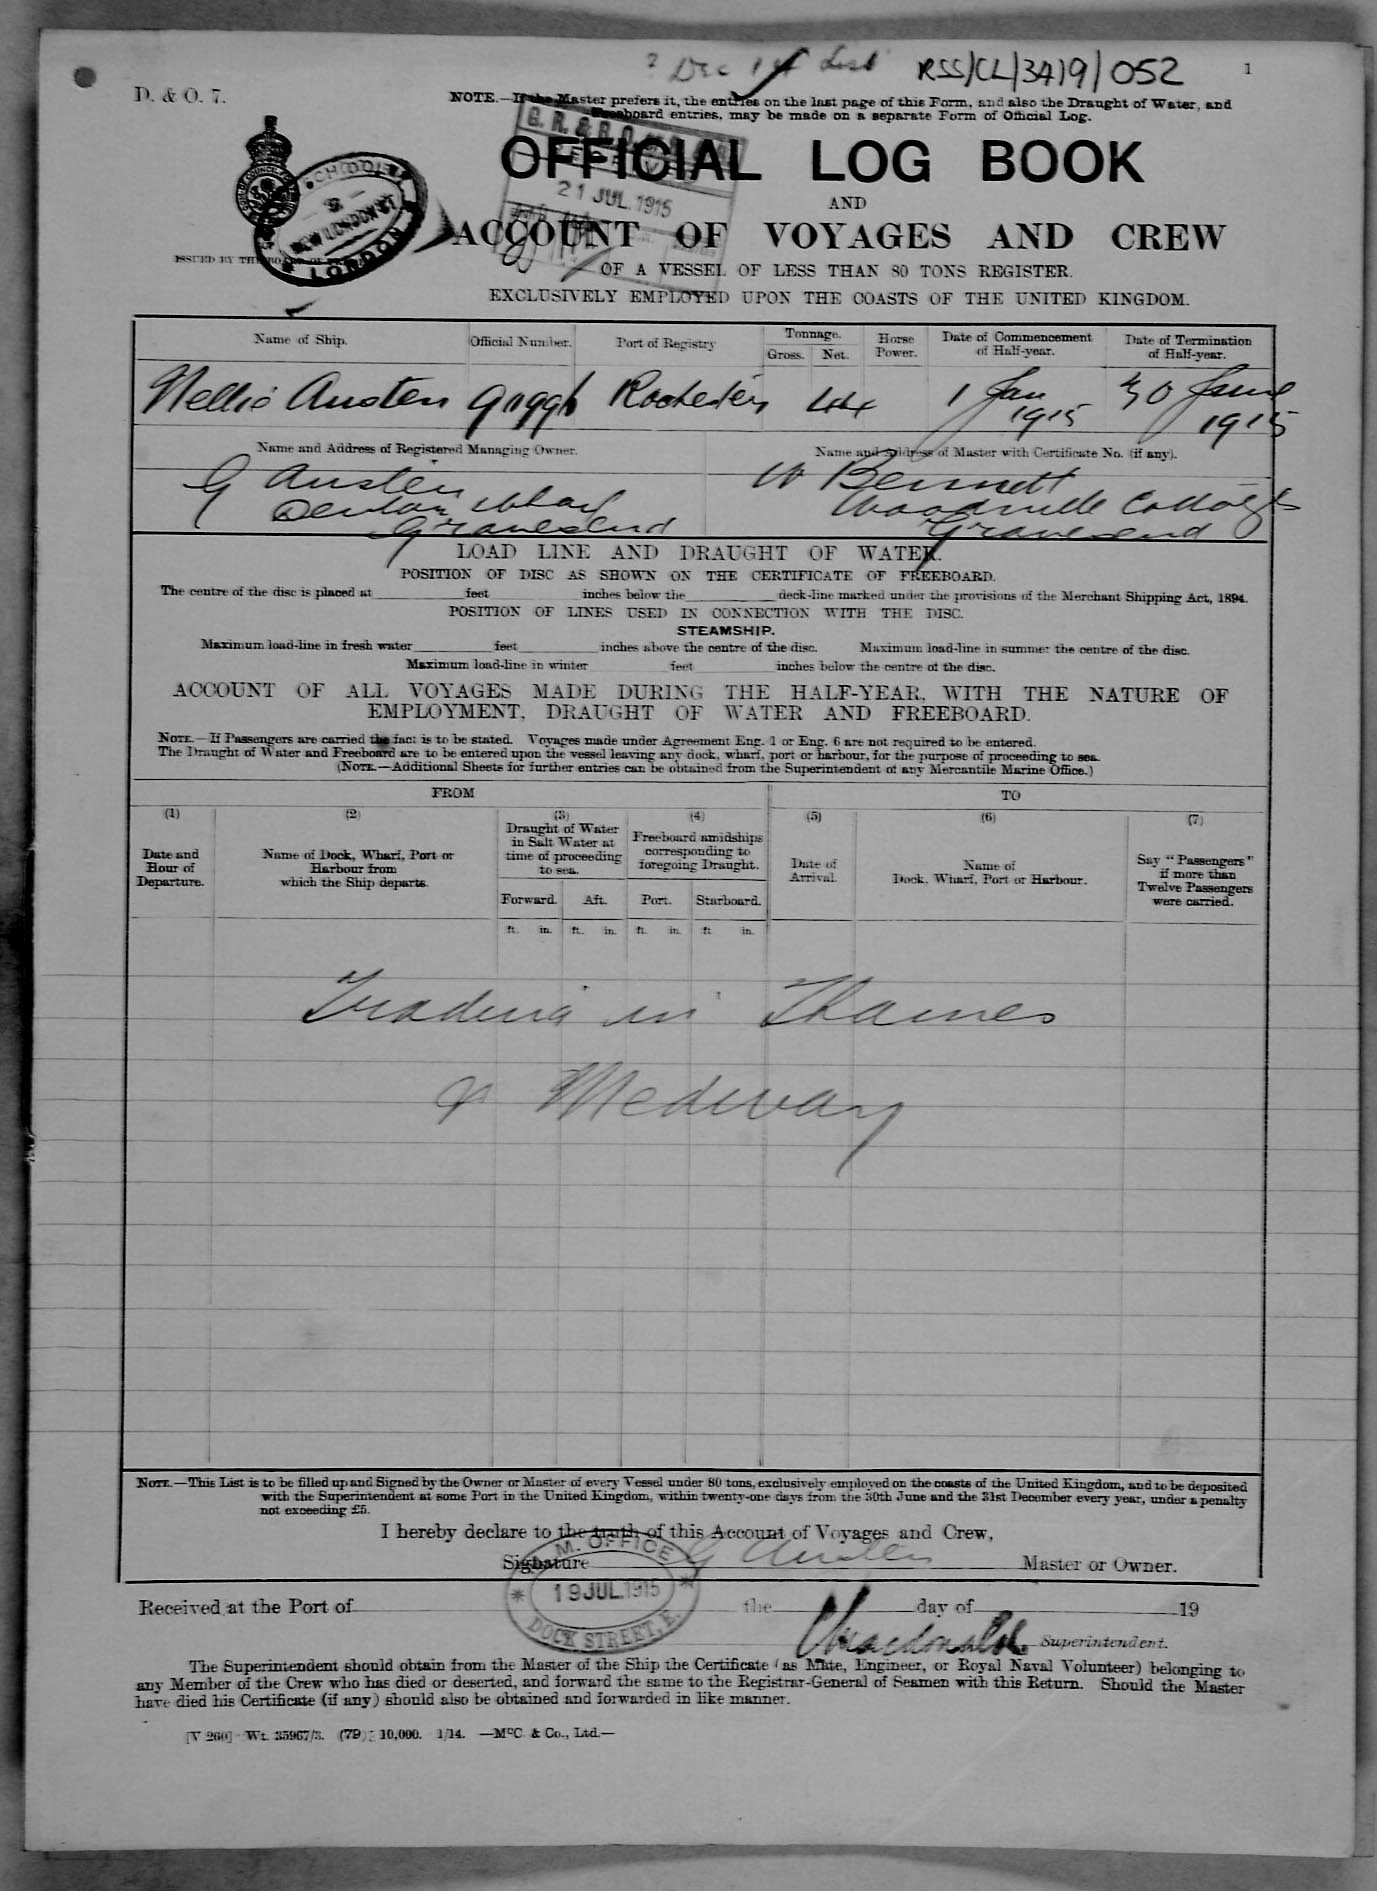 ? Dec 1st List RSS/CL/3A)9/052 1
D. & O. 7.
NOTE.—If the Master prefers it, the entries on the last page of this Form, and also the Draught of Water, and
Freeboard entries, may be made on a separate Form of Official Log.
OFFICIAL LOG BOOK
21 JUL.1915
AND
NEW LONDON ST
LONDON
ACCOUNT OF VOYAGES AND CREW
ISSUED BY THE BOARD OF
OF A VESSEL OF LESS THAN 80 TONS REGISTER.
EXCLUSIVELY EMPLOYED UPON THE COASTS OF THE UNITED KINGDOM.
Name of Ship. Official Number. Port of Registry Tonnage. Horse Power. Date of Commencement of Half-year. Date of Termination of Half-year.
Gross. Net.
Nellie Austen Rochester 44 1 Jan 1915 30 June 1915
Name and Address of Registered Managing Owner. Name and Address of Master with Certificate No. (if any).
G Austen W Bennett
Denton Wharf Woodville Cottages
Gravesend Gravesend
LOAD LINE AND DRAUGHT OF WATER.
POSITION OF DISC AS SHOWN ON THE CERTIFICATE OF FREEBOARD.
The centre of the disc is placed at feet inches below the deck-line marked under the provisions of the Merchant Shipping Act, 1894.
POSITION OF LINES USED IN CONNECTION WITH THE DISC.
STEAMSHIP.
Maximum load-line in fresh water feet inches above the centre of the disc. Maximum load-line in summer the centre of the disc.
Maximum load-line in winter feet inches below the centre of the disc.
ACCOUNT OF ALL VOYAGES MADE DURING THE HALF-YEAR, WITH THE NATURE OF
EMPLOYMENT, DRAUGHT OF WATER AND FREEBOARD.
NOTE.—If Passengers are carried the fact is to be stated. Voyages made under Agreement Eng. 1 or Eng. 6 are not required to be entered.
The Draught of Water and Freeboard are to be entered upon the vessel leaving any dock, wharf, port or harbour, for the purpose of proceeding to sea.
(NOTE.—Additional Sheets for further entries can be obtained from the Superintendent of any Mercantile Marine Office.)
FROM TO
(1) (2) (3) (4) (5) (6) (7)
Date and Hour of Departure. Name of Dock, Wharf, Port or Harbour from which the Ship departs. Draught of Water in Salt Water at time of proceeding to sea. Freeboard amidships corresponding to foregoing Draught. Date of Arrival. Name of Dock, Wharf, Port or Harbour. Say "Passengers" if more than Twelve Passengers were carried.
Forward. Aft. Port. Starboard.
ft. in. ft. in. ft. in. ft in.
Trading in Thames
& Medway
NOTE.—This List is to be filled up and Signed by the Owner or Master of every Vessel under 80 tons, exclusively employed on the coasts of the United Kingdom, and to be deposited
with the Superintendent at some Port in the United Kingdom, within twenty-one days from the 30th June and the 31st December every year, under a penalty
not exceeding £5.
I hereby declare to the truth of this Account of Voyages and Crew,
M. OFFICE
Signature G Austen Master or Owner.
19 JUL.1915
Received at the Port of the day of 19
DOCK STREET, E.
Macdonald Superintendent.
The Superintendent should obtain from the Master of the Ship the Certificate (as Mate, Engineer, or Royal Naval Volunteer) belonging to
any Member of the Crew who has died or deserted, and forward the same to the Registrar-General of Seamen with this Return. Should the Master
have died his Certificate (if any) should also be obtained and forwarded in like manner.
[V 260] Wt. 35967/3. (79) 10,000. 1/14. —McC. & Co., Ltd.—